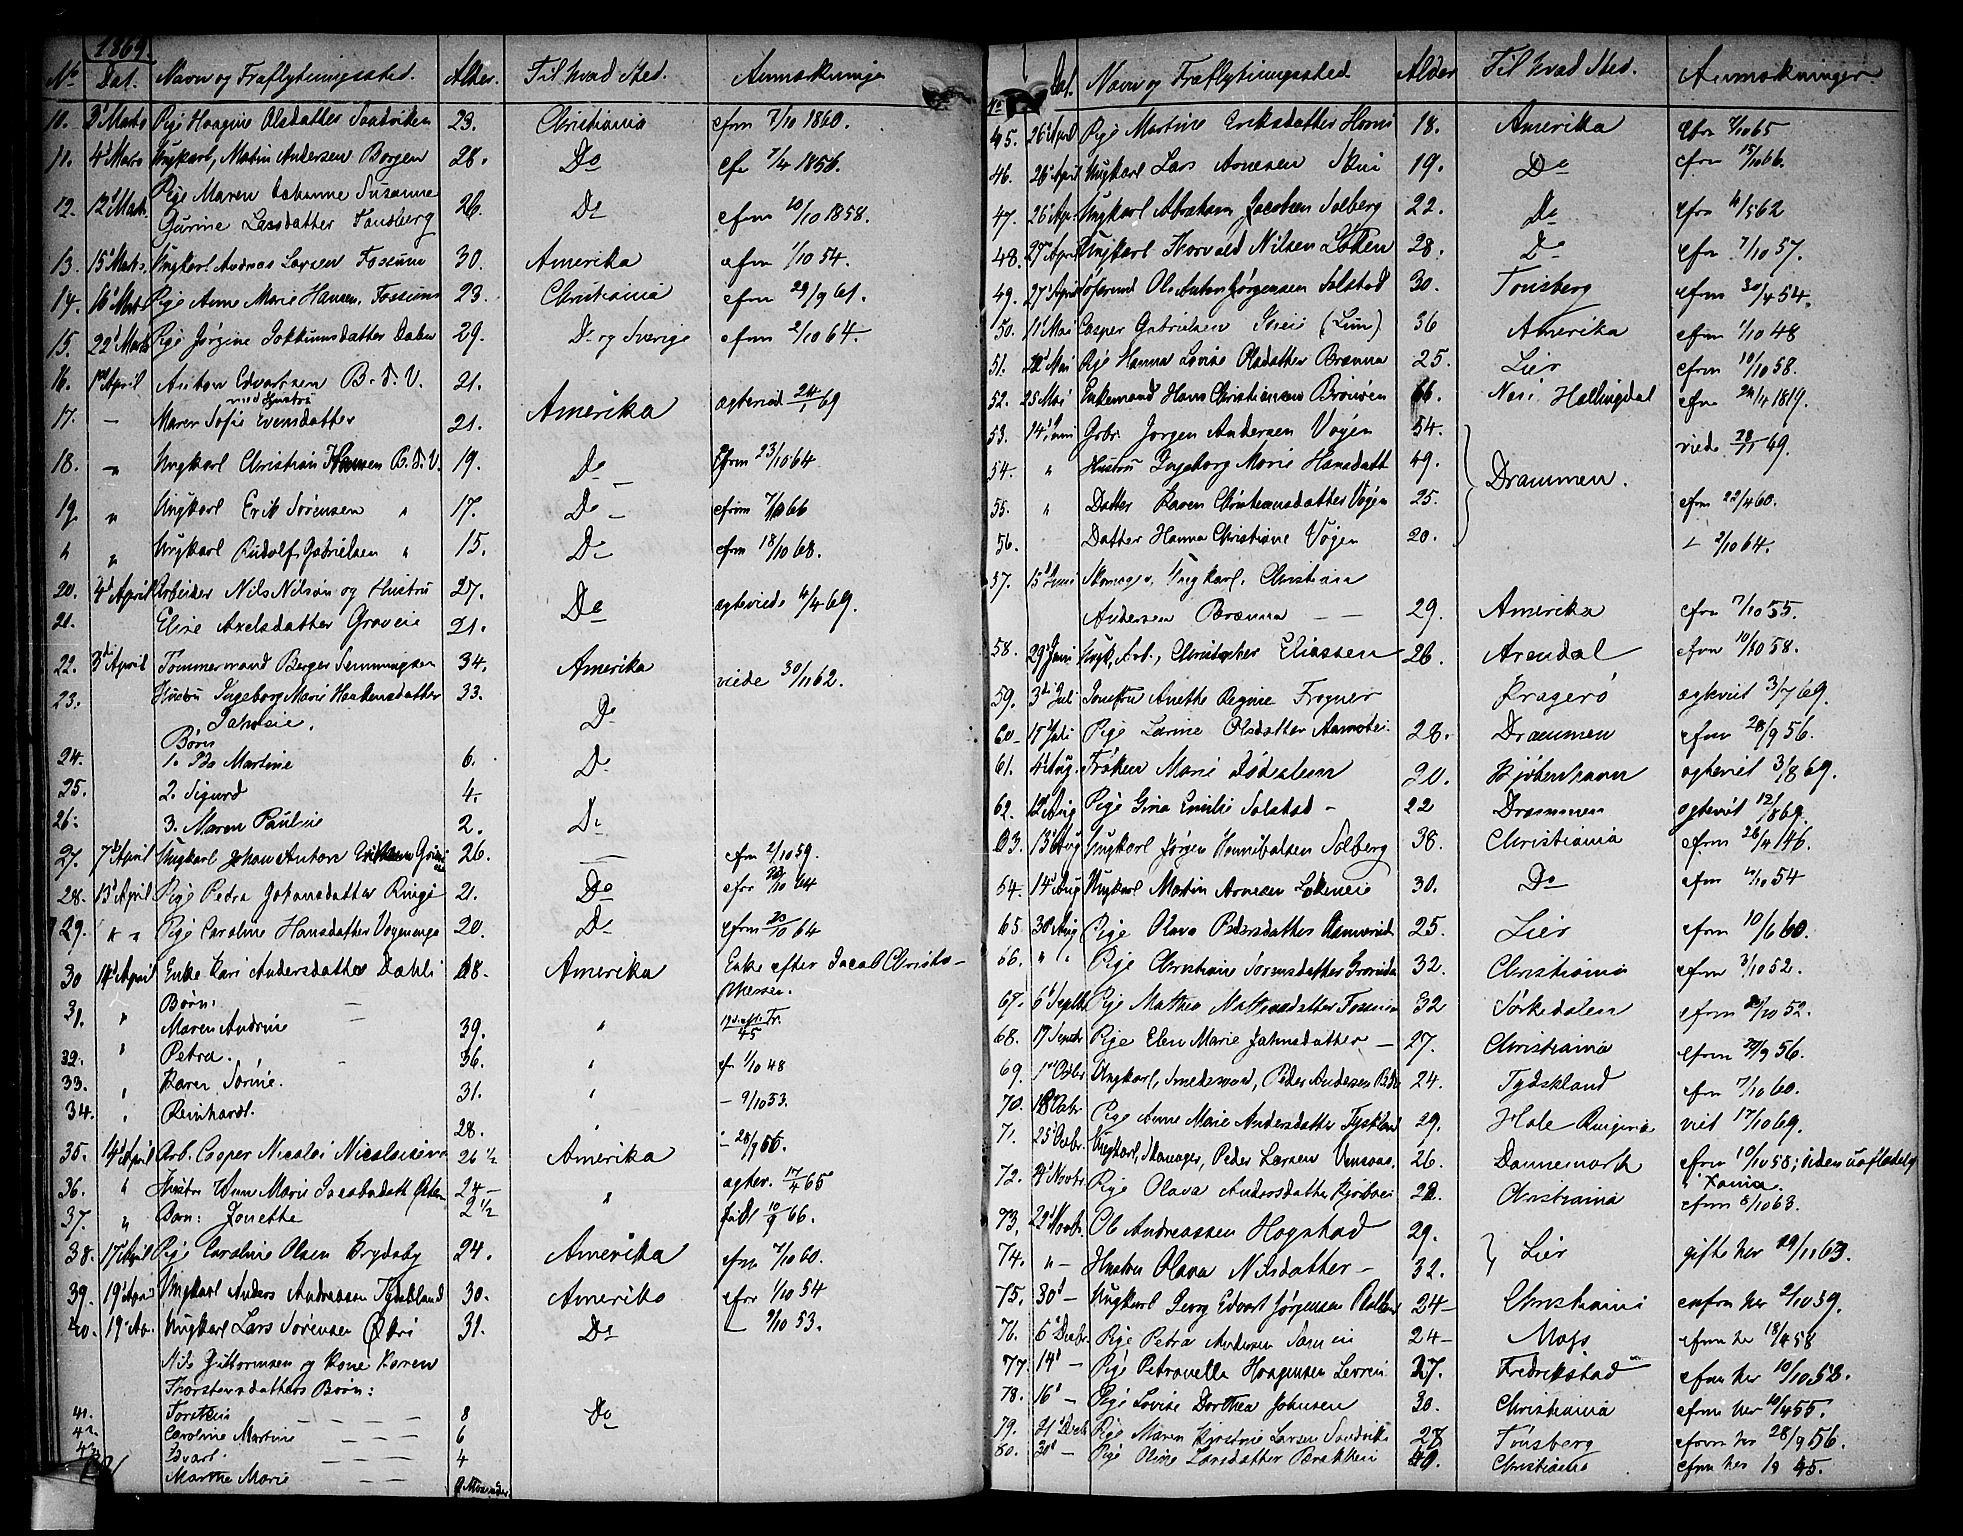 1869.
No Dat. Navn og Fraflytningssted. Alder. Til hvad Sted. Anmærkninge
11. 3' Marts Pige Haagine Olsdatter Sandviken 23. Christiania cfrm 7/10 1860.
11. 4' Mars Ungkarl, Martin Andersen Borgen 28. Do 7/4 1856.
Pige Maren Johanne Susanne
12. 12' Mats. Gurine Larsdatter Tandberg 26. Do cfrm 10/10 1858.
13. 15' Mats. Ungkarl Andreas Larsen Fossum 30. Amerika cfrm 1/10 54.
14. 16' Mart Pige Anne Marie Hansen, Fossum 23. Christiania cfrm 29/9 61.
15. 22' Marts Pige Jørgine Jokkumsdatter Dalen 29. Do og Sverige cfrm 2/10 64.
16. 1st April Anton Edvartsen B. S. V. 21.
med Hustru Amerika 24/1 69
17. – Maren Sofie Evensdatter 21.
18. " Ungkarl Christian Hansen B. S. V. 19. Do – cfrm 23/10 64
19. " Ungkarl Erik Sørensen " 17. Do – cfrm 7/10 66
" " Ungkarl Rudolf Gabrielsen " 15. Do cfrm 18/10 68.
20. 4' April Arbeider Nils Nilsen og Hustru 27. Do ægteviede 4/4 69.
21. Elise Axelsdatter Graveie 21.
22. 3di April Tømmermand Berger Semmingsen 34. Amerika viede 30/11 62.
23. Hustru Ingeborg Marie Haakensdatter 33. Do
Børn
24. 1. Ida Martine 6. Do
25. 2. Sigurd 4.
26. 3. Maren Pauline 2. Do
27. 7' April Ungkarl Johan Anton 26. — cfrm 2/10 59.
28. 13' April Pige Petra Johansdatter Ringi 21. Do cfrm /10 64
29. " " Pige Caroline Hansdatter Vøgenenga 20. Do cfrm 20/10 64
30 14' April Enke Kari Andersdatter Dæhli 68. Amerika Enke efter Jacob Christo-
Børn: – phersen.
31. " Maren Andrine – 39. "
32. " Petra. 36. " cf 1/10 48
33. " Karen Sørine. 31. " – 9/10 53.
34. " Reinhardt. 28. " – 28/9 56.
35. 14' April Arb. Casper Nicolai Nicolaisen 26 1/2 Amerika
36. " Hustru Anne Marie Jacobsdatt 24 – " ægtev. 17/4 65
37. " Barn: Jonette 2 1/2 født 10/9 66.
38. 17' April Pige Caroline Olsen Brydeby 24. Amerika cfrm 7/10 60.
39. 19' April Ungkarl Anders Andreasen Tyskland 30. Amerika cfrm 1/10 54
40. 19' Ap. Ungkarl Lars Sørensen Østri 31. Do – 9/10 53.
Nils Guttormsen og Kone Karen
Thorstensdatters Børn:
41. Torsten – – – 8 Do
42. Caroline Martine – – – 6
43. Edvart – – – 4
Marthe Marie – – 9 Maaneder.
No Dat. Navn og Fraflytningssted. Alder Til hvad Sted. Anmærkninger
45. 26' April Pige Martine Eriksdatter Horni 18. Amerika cfrm 7/10 65
46. 26' April Ungkarl Lars Arnesen Skui 19. Do cfrm 15/10 66.
47. 26' Apr. Ungkarl Abraham Jacobsen Solberg 22. Do cfrm 4/5 62
48. 27' April Ungkarl Thorvald Nilsen Løken 28. Do cfrm 7/10 57.
49. 27' April Sømand Ole Anton Jørgensen Solstad 30. Tønsberg cfrm 30/4 54.
50. 11' Mai Casper Gabrielsen (Lun) 36 Amerika cfrm 1/10 48
51. 22' Mai Pige Hanna Lovise Olsdatter Brænna 25. Lier cfrm 10/10 58.
52. 25 Mai Enkemand Hans Christiansen Brønøen 66. Næs Hallingdal cfrm 24/4 1819.
53. 14' Juni Grbr. Jørgen Andersen Vøgen 54. viede 28/ 69.
54. " Hustru Ingeborg Marie Hansdatt 49. Drammen.
55. " Datter Karen Christiansdatter Vøgen 25. cfrm 22/4 60.
56. Datter Hanna Christiane Vøgen 20. – 2/10 64.
57. 15' Juni Skomager, Ungkarl, Christian
Andersen Brænna – – 29. Amerika cfrm 7/10 55.
58. 29' Juni Ungk, Arb., Christopher Eliassen 26. Arendal cfrm 10/10 58.
59. 3di Juli Jomfru Anette Regine Frogner Kragerø ægteviet 3/7 69.
60 – 17 Juli Pige Larine Olsdatter 28. Drammen cfrm 28/9 56.
61. 4' Aug. Frøken Marie 20. Kjøbenhavn ægteviet 3/8 69.
62. 12' Aug Pige Gina Emilie Solstad – 22 Drammen ægteviet 12/8 69.
63. 13' Aug Ungkarl Jørgen Hannibalsen Solberg 38. Christiania cfrm 26/4 46.
64. 14' Aug Ungkarl Martin Arnesen Løkeneie 30. Do cfrm 1/10 54
65. 30' Aug Pige Olava Pedersdatter 25. Lier cfrm 10/6 60.
66. " " Pige Christine 32. Christiania cfrm 3/10 52.
67. 6' Septbr Pige Mathea Mathiasdatter Fossum 32 Sørkedalen cfrm /10 52.
68. 17 Septbr Pige Elen Marie Jahnsdatter – 27. Christiania cfrm 28/9 56.
69. 1st Octbr Ungkarl, Smedesvend, Peder Andersen 24. Tydskland cfrm 7/10 60.
70. 18' Octbr Pige Anne Marie Andersdatter Tyskland 29. Hole Ringerige viet 17/10 69.
71. 25' Octbr. Ungkarl, Skomager, Peder Larsen 26. Dannemark cfrm 10/10 58;
72. 4' Novbr Pige Olava Andersdatter 22. Christiania cfrm 8/10 63.
73. 22' Novb. Ole Andreassen Hogstad 29. Lier gifte her 29/11 63.
74. " – Hustru Olava Nilsdatter – 32.
75. 30' – Ungkarl Georg Edvart Jørgensen 24 – Christiania cnfrm her 2/10 59.
76. 6' Decbr Pige Petra Andersen 24 – Moss cfrm her 18/4 58
77. 14' – Pige Petronelle Haagensen 27. Fredrikstad cfrm her 10/10 58.
78. 16' – Pige Lovise Dorthea Johnsen 30. Christiania cfrm her 10/4 55.
79. 21' Decb Pige Maren Kirstine Larsen Sandviken 28 Tønsberg cfrm her 28/9 56.
80. 30' – Pige Oline Larsdatter 40. Christiania cfrm her 45.